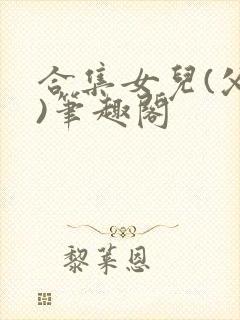 合集女兒(父
)筆趣閣
黎萊恩